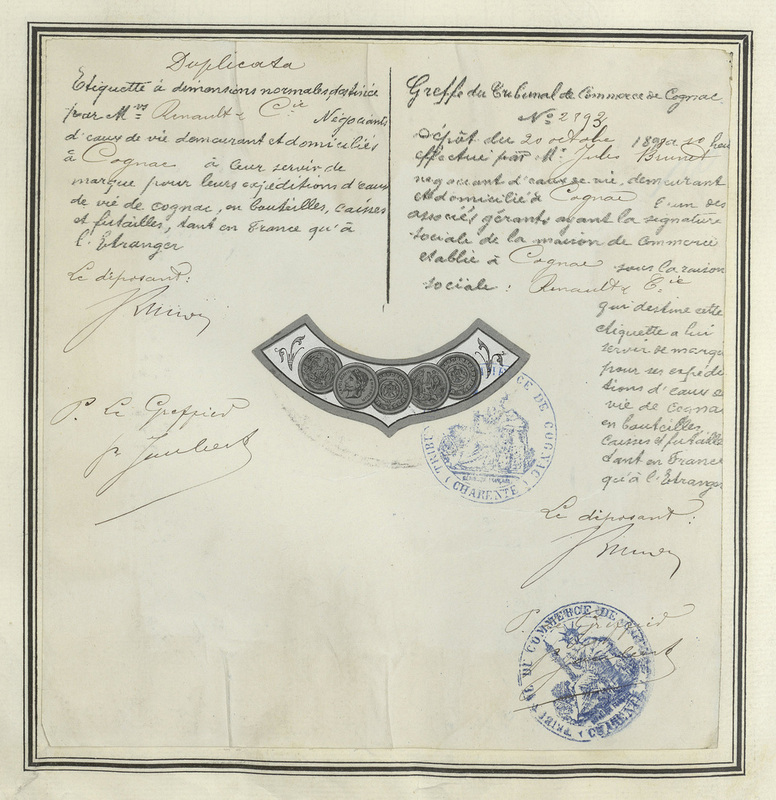 Duplicata
Etiquette à dimensions normales destinée
par M.rs Renault & Cie Négociants
d'eaux de vie demeurant et domiciliés
à Cognac à leur servir de
marque pour leurs expéditions d'eaux
de vie de cognac, en bouteilles, caisses
et futailles, tant en France qu'à
l'Etranger
Le déposant:
P. Le Greffier
Greffe du Tribunal de Commerce de Cognac.
No 2793
Dépôt du 20 octobre
effectué par Mr. Jules Brunet
négociant d'eaux de vie, demeurant
et domicilié à Cognac l'un des
associés gérants ayant la signature
sociale de la maison de commerce
etablie à Cognac sous la raison
sociale: Renault & Cie
qui destine cette
etiquette a lui
servir de marque
pour ses expédi
tions d'eaux de
vie de Cognac
en bouteilles
caisses et futailles
tant en France
qu'à l'Etranger
Le déposant:
P. Le Greffier
TRIB. DE COMMERCE DE COGNAC
(CHARENTE)
TRIB. DE COMMERCE DE COGNAC
(CHARENTE)